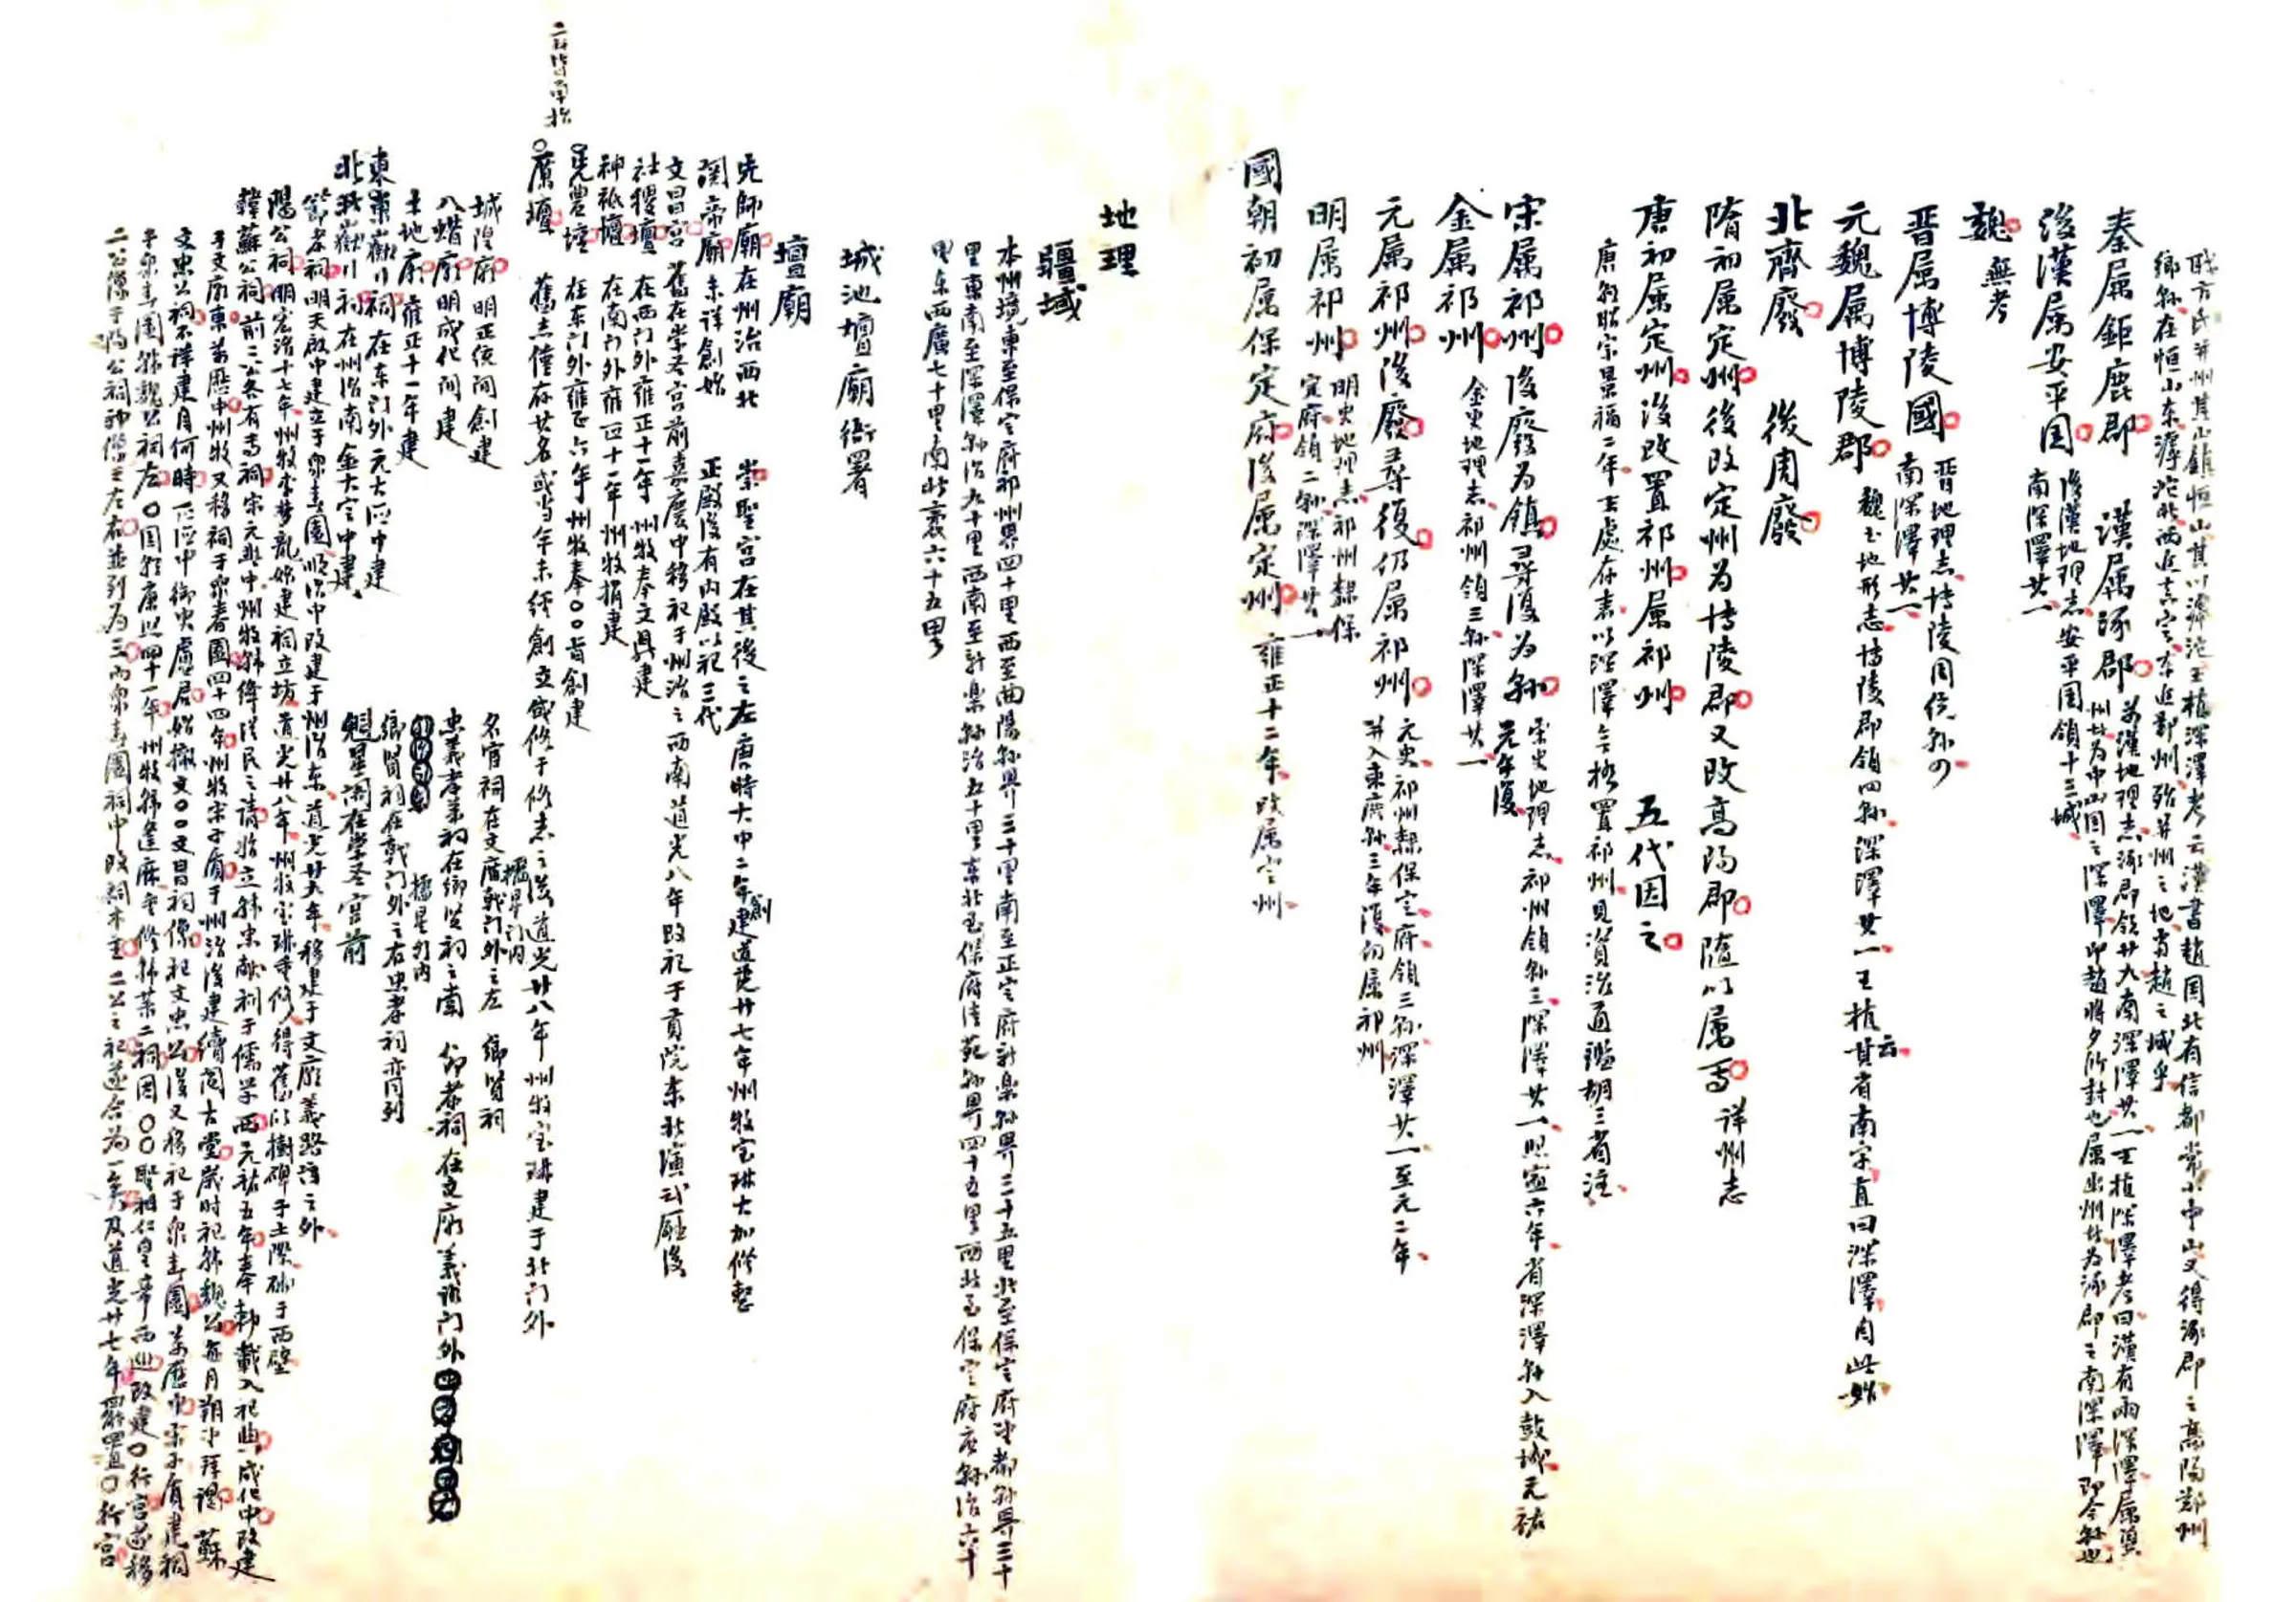 職方氏并州其山鎮恒山其川滹沱王植深澤考云漢書趙国北有信都常山中山又得涿郡之高陽鄚州
鄉縣在恒山东滹沱北西近真定东近鄚州殆并州之地省趙之域乎
秦屬鉅鹿郡　漢屬涿郡
州廿为中山国之深澤即趙將夕所封也屬幽州廿为涿郡之南深澤即今縣也
後漢属安平国　後漢地理志安平国領十三城
南深澤廿一
魏無考
晋属博陵國　晋地理志博陵国統縣四
南深澤廿一
元魏属博陵郡　魏書地形志博陵郡領四縣深澤廿一王植云其省南字直曰深澤自此始
北齊廢　後周廢
隋初属定州後改定州为博陵郡又改高陽郡隨以属焉　详州志
唐初属定州後改置祁州属祁州　五代因之
唐書昭宗景福二年王處存表以深澤無極置祁州見資治通鑑胡三省注
宋属祁州後廢为鎮尋復为縣　宋史地理志祁州領縣三深澤廿一熙寧六年省深澤縣入鼓城元祐
元年復
金属祁州　金史地理志祁州領三縣深澤廿一
元属祁州後廢尋復仍属祁州　元史祁州隸保定府領三縣深澤廿一至元二年
并入束鹿縣三年復仍属祁州
明属祁州　明史地理志祁州隸保
定府領二縣深澤廿一
國朝初属保定府後属定州　雍正十二年改属定州
地理
疆域
本州境東至保定府祁州界四十里西至曲陽縣界三十里南至正定府新樂縣界三十五里北至保定府望都縣界三十
里東南至深澤縣治九十里西南至新樂縣治五十里东北至保府清苑縣界四十五里西北至保定府唐縣治六十
里东西廣七十里南北袤六十五里
城池壇廟衙署
壇廟
先師廟在州治西北　崇聖宫在其後之左唐時大中二年創建道光廿七年州牧宝琳大加修整
関帝廟未详創始　正殿後有内殿以祀三代
文昌宫舊在学圣宫前嘉慶中移祀于州治之西南道光八年改祀于貢院东北演武廳後
社稷壇　在西门外雍正十一年州牧奉文興建
神祇壇　在南门外雍正十一年州牧捐建
先農壇　在东门外雍正六年州牧奉〇〇旨創建
厲壇　舊志僅存其名或当年未经創立或修于修志之後道光廿八年州牧宝琳建于北门外
二公皆南指
城隍廟明正统间創建
名宦祠在文廟戟门外之左　鄉賢祠
櫺星门内
八蜡廟明成化间建
忠義孝弟祠在鄉賢祠之南　節孝祠在文廟義路门外
土地廟雍正十一年建
櫺星门内
鄉賢祠在戟门外之右忠孝祠亦同列
東東嶽川祠在东门外元大德中建
魁星阁在学圣宫前
北北嶽川祠在州治南金大定中建
節孝祠明天啟中建立于衆春園順治中改建于州治东道光廿九年移建于文廟義路门之外
陽公祠明宏治十七年州牧李梦龍始建祠立坊道光廿八年州牧宝琳重修得舊以樹碑于土際砌于西壁
韓蘇公祠前二公各有专祠宋元豐中州牧韩绛従民之請始立韩忠献祠于儒学西元祐五年奉勅載入祀典成化中改建
于文廟東萬歷中州牧又移祠于衆春園四十四年州牧宋子質于州治後建續阅古堂歲时祀韩魏公每月朔必拜謁蘇
文忠公祠不详建自何時正德中御史盧君始撤文〇〇文昌祠像祀文忠公後又移祀于衆春園萬歷中宋子質建祠
于衆春園韩魏公祠左〇国朝康熙四十一年州牧韩逢庥重修韩苏二祠因〇〇聖祖仁皇帝西巡改建〇行宫遂移
二公像于陽公祠神像至左右並列为三而衆春園祠中改祠木主二公之祀遂合为一矣及道光廿七年罷置〇行宫